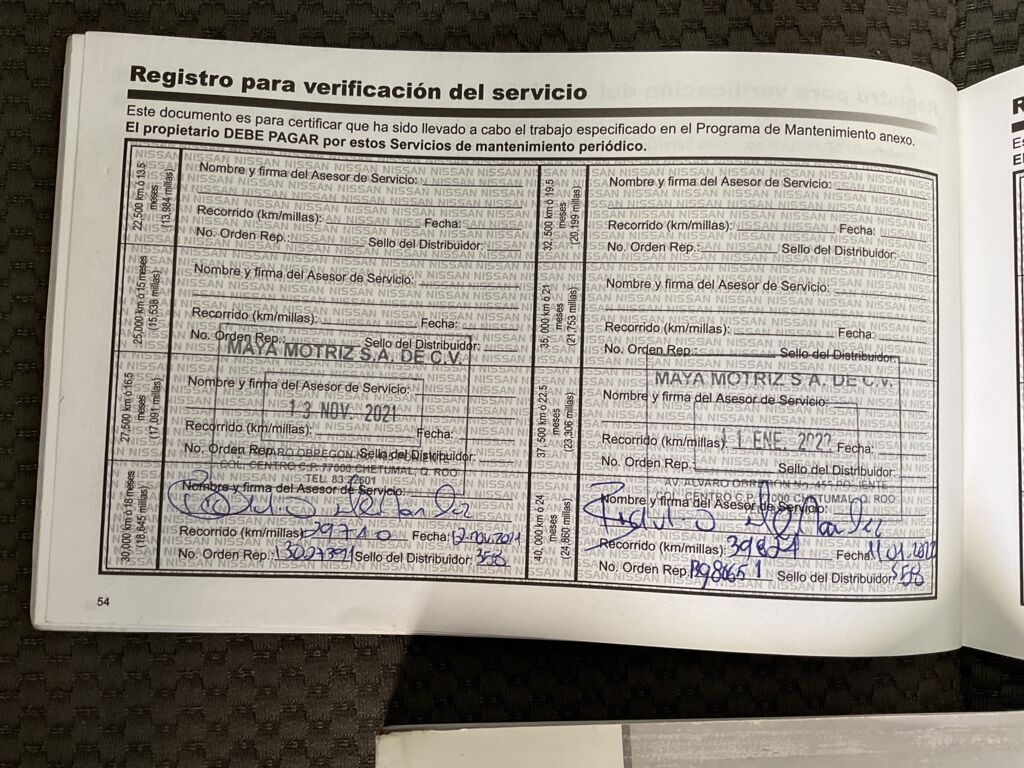 Registro para verificación del servicio
Este documento es para certificar que ha sido llevado a cabo el trabajo especificado en el Programa de Mantenimiento anexo.
El propietario DEBE PAGAR por estos Servicios de mantenimiento periódico.
22,500 km ó 13.5 meses (13,984 millas)
Nombre y firma del Asesor de Servicio:
Recorrido (km/millas): Fecha:
No. Orden Rep.: Sello del Distribuidor:
25,000 km ó 15 meses (15,538 millas)
Nombre y firma del Asesor de Servicio:
Recorrido (km/millas): Fecha:
No. Orden Rep.: Sello del Distribuidor:
MAYA MOTRIZ S.A. DE C.V.
27,500 km ó 16.5 meses (17,091 millas)
Nombre y firma del Asesor de Servicio:
13 NOV. 2021
Recorrido (km/millas): Fecha:
No. Orden Rep.: Sello del Distribuidor:
COL. CENTRO C.P. 77000 CHETUMAL, Q. ROO
TEL. 83 22601
30,000 km ó 18 meses (18,645 millas)
Nombre y firma del Asesor de Servicio:
Recorrido (km/millas): 29710 Fecha: 12.nov.2021
No. Orden Rep.: Sello del Distribuidor: 358
32,500 km ó 19.5 meses (20,199 millas)
Nombre y firma del Asesor de Servicio:
Recorrido (km/millas): Fecha:
No. Orden Rep.: Sello del Distribuidor:
35,000 km ó 21 meses (21,753 millas)
Nombre y firma del Asesor de Servicio:
Recorrido (km/millas): Fecha:
No. Orden Rep.: Sello del Distribuidor:
MAYA MOTRIZ S.A. DE C.V.
37,500 km ó 22.5 meses (23,306 millas)
Nombre y firma del Asesor de Servicio:
Recorrido (km/millas): Fecha:
11 ENE. 2022
No. Orden Rep.: Sello del Distribuidor:
AV. ALVARO OBREGON No. PONIENTE
COL. CENTRO C.P. 77000 CHETUMAL, Q. ROO
40,000 km ó 24 meses (24,860 millas)
Nombre y firma del Asesor de Servicio:
Recorrido (km/millas): 39821 Fecha: 11.01.2022
No. Orden Rep.: Sello del Distribuidor: 358
54